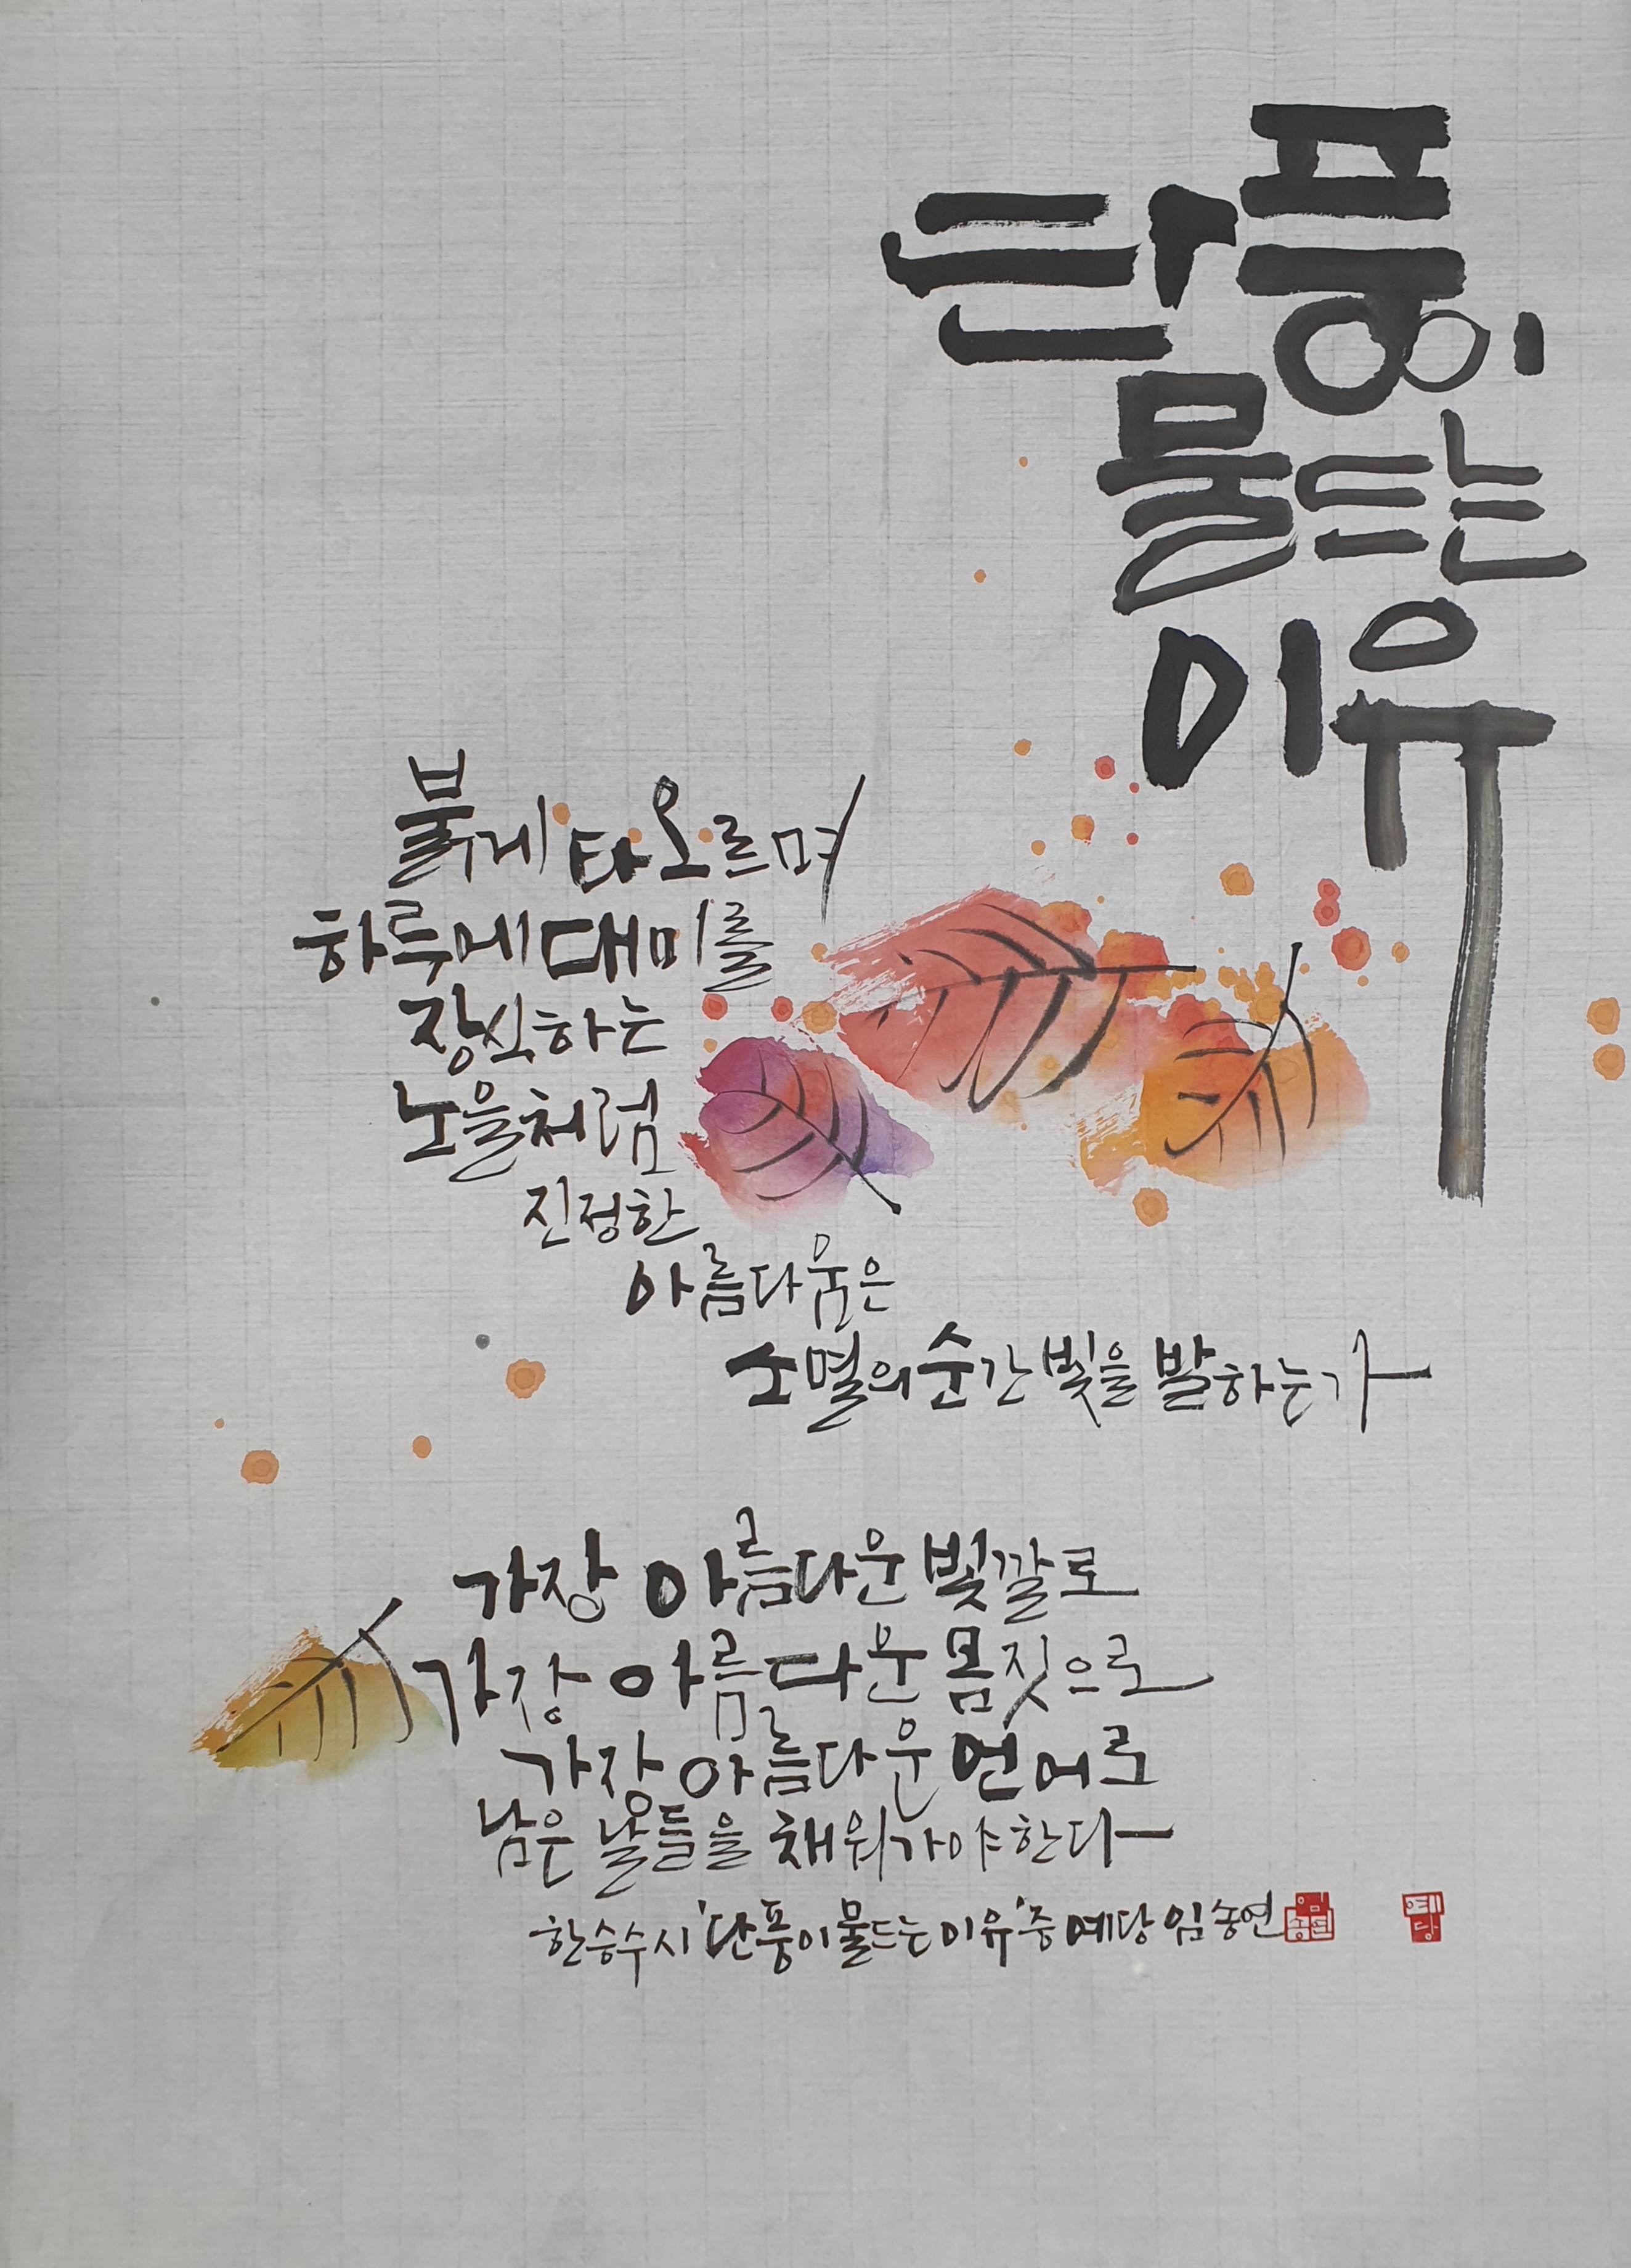 단풍이
물드는
이유
붉게 타오르며
하루에 대미를
장식하는
노을처럼
진정한
아름다움은
소멸의 순간 빛을 발하는가
가장 아름다운 빛깔로
가장 아름다운 몸짓으로
가장 아름다운 언어로
남은 날들을 채워가야한다
한승수 시 '단풍이 물드는 이유' 중 예당 임송연
임송연
예당